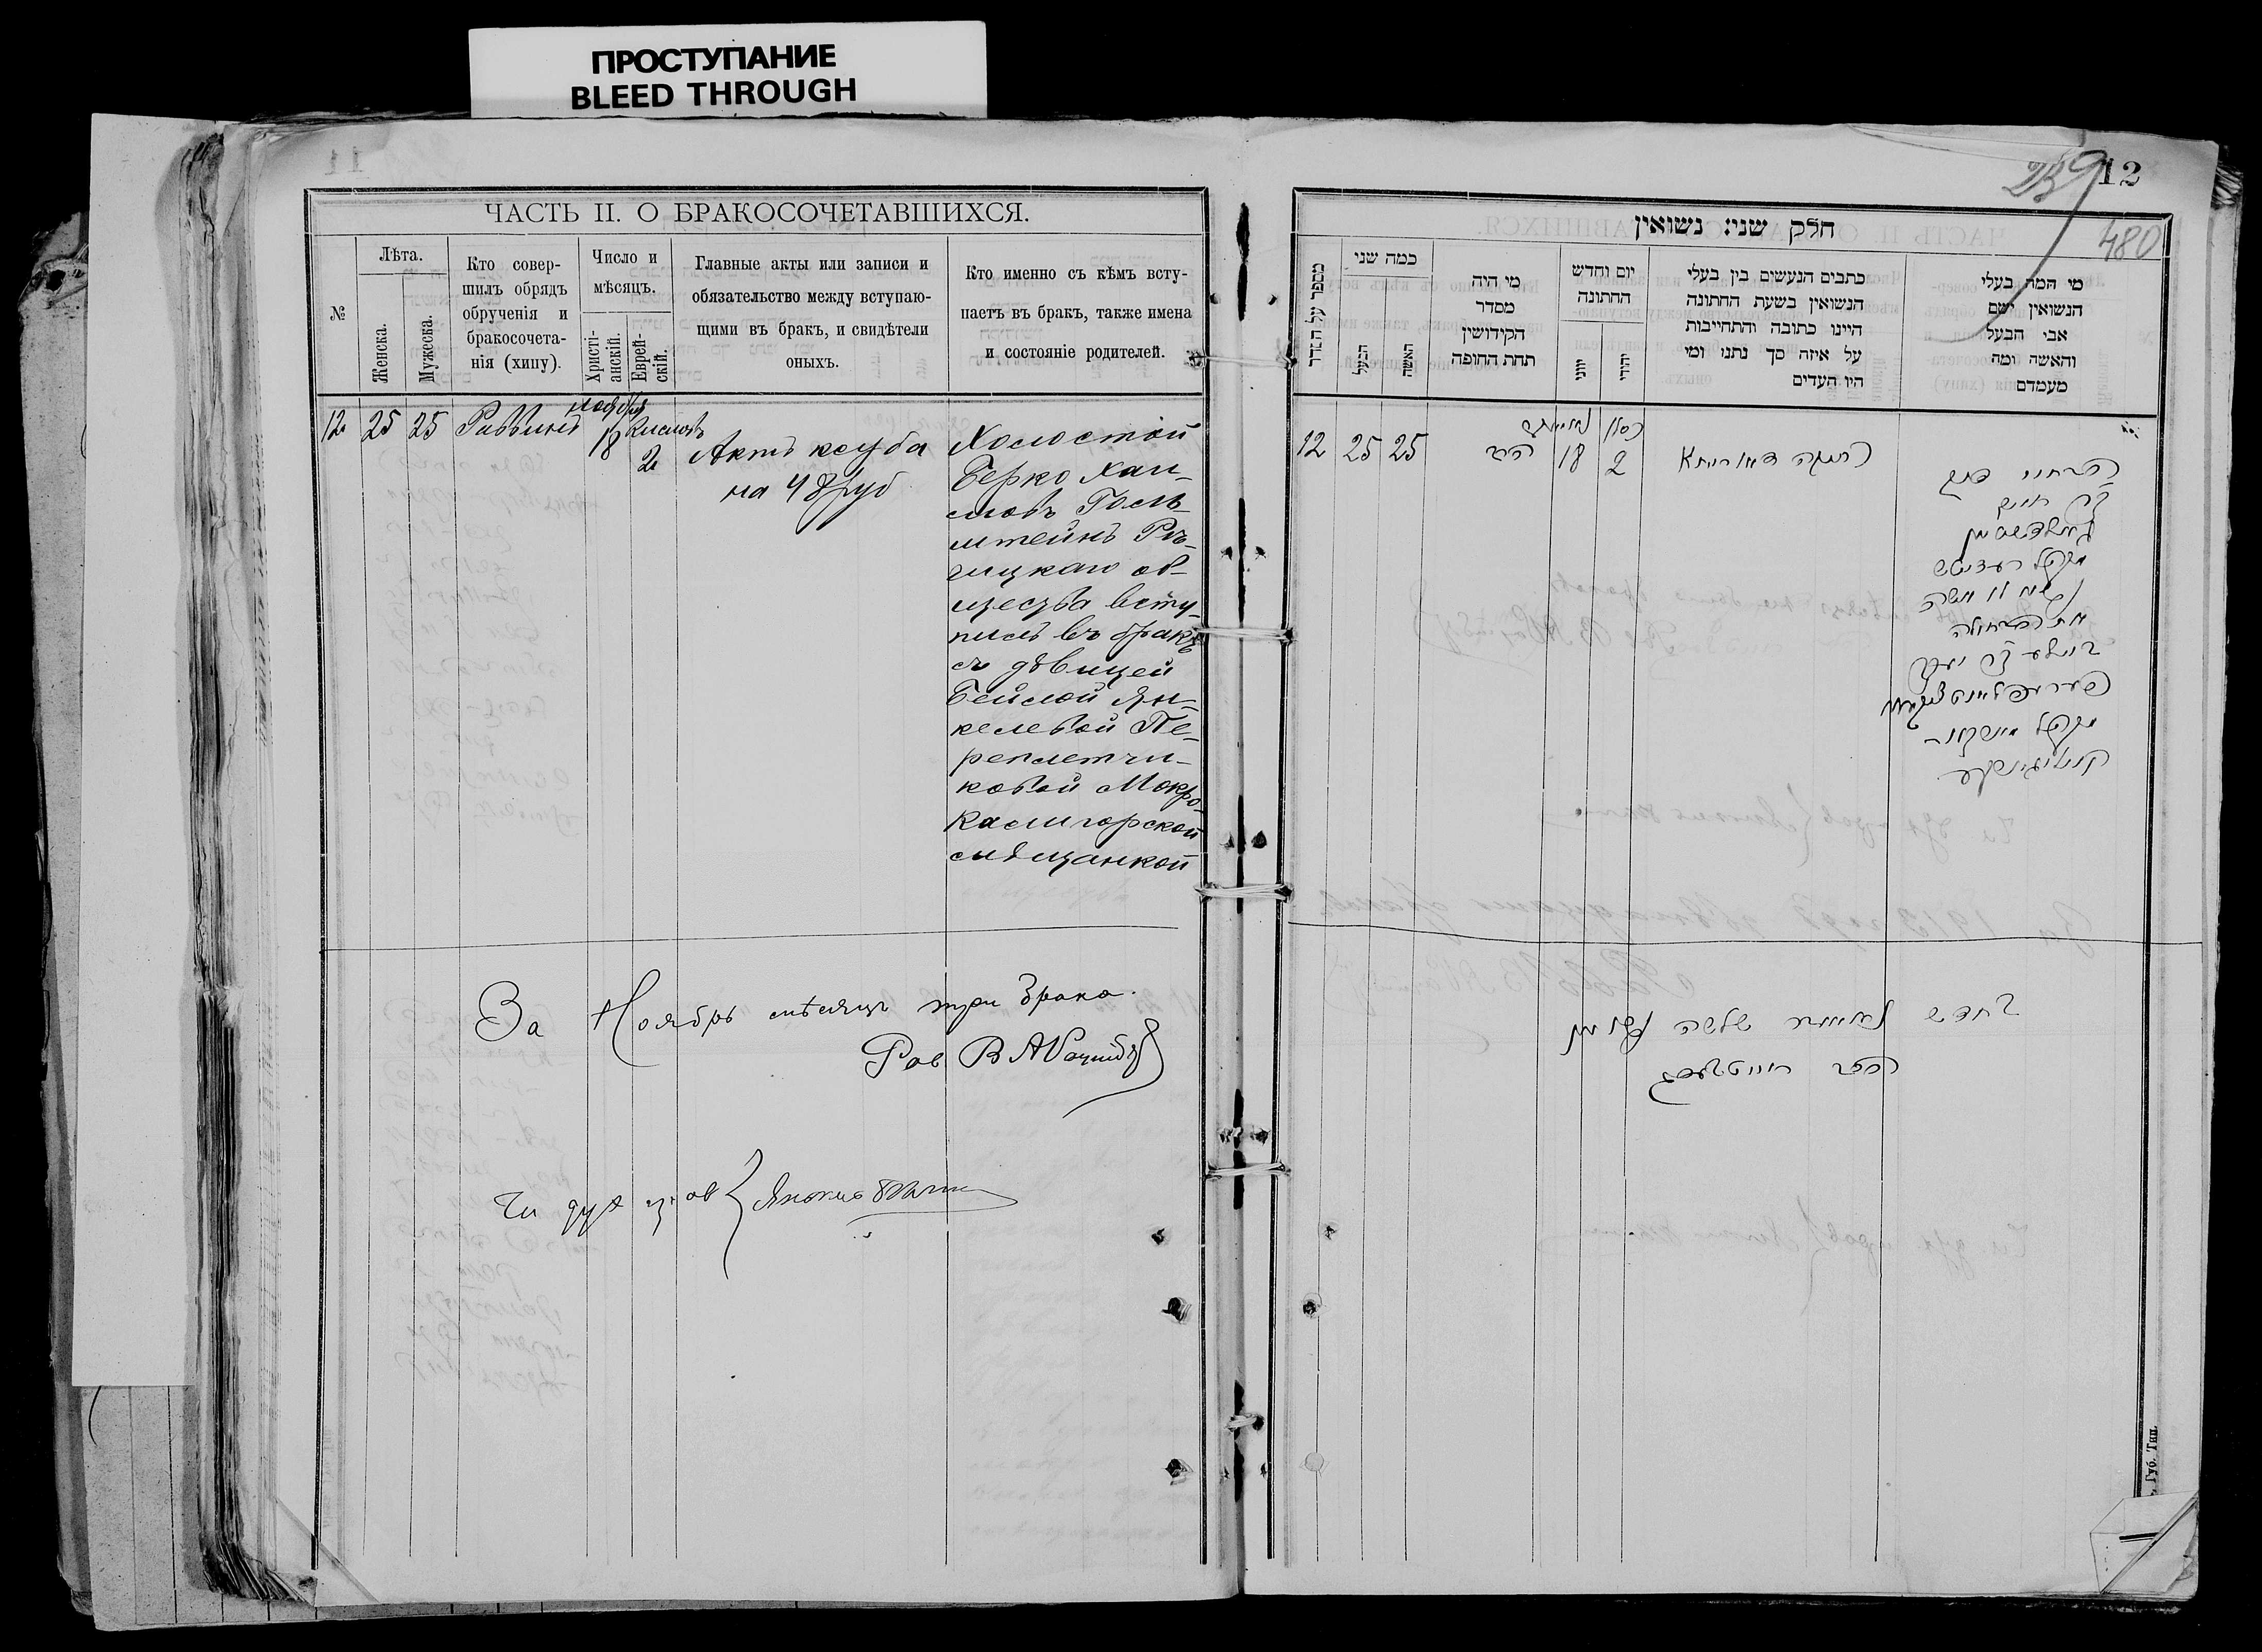 ПРОСТУПАНИЕ
BLEED THROUGH
ЧАСТЬ II. О БРАКОСОЧЕТАВШИХСЯ.
№
Лѣта.
Женска.
Мужеска.
Кто совер-
шилъ обрядъ
обрученія и
бракосочета-
нія (хипу).
Число и
мѣсяцъ.
Христі-
анскій.
Еврей-
скій.
Главные акты или записи и
обязательство между вступаю-
щими въ бракъ, и свидѣтели
оныхъ.
Кто именно съ кѣмъ всту-
паетъ въ бракъ, также имена
и состояніе родителей.
12 25 25 Раввинъ
Ноября
18
Кислевъ
2
Актъ ксуба
на 48 руб
Холостой
Берко Хаи-
мовъ Голь-
штейнъ Рѣ-
чицкаго об-
щества всту-
пилъ въ бракъ
съ дѣвицей
Бейлой Ян-
келевой Пе-
реплетчи-
ковой Мокро-
Калигорской
мѣщанкой
За Ноябрь мѣсяцъ три брака.
Рав В А
Чл дух прав
12
239
480
חלק שני׃ נשואין
מספר על הסדר
כמה שני
הבעל
האשה
מי היה
מסדר
הקידושין
תחת החופה
יום וחדש
החתונה
יווני
יהודי
כתבים הנעשים בין בעלי
הנשואין בשעת החתונה
היינו כתובה והתחייבות
על איזה סך נתנו ומי
היו העדים
מי המה בעלי
הנשואין ושם
אבי הבעל
והאשה ומה
מעמדם
12 25 25 הרב
18
כסלו
2
הבחור
חיים
גאלדשטיין
מקהל
בת
ביילע
מקהל
בחדש שלשה
הרב
Губ. Тип.